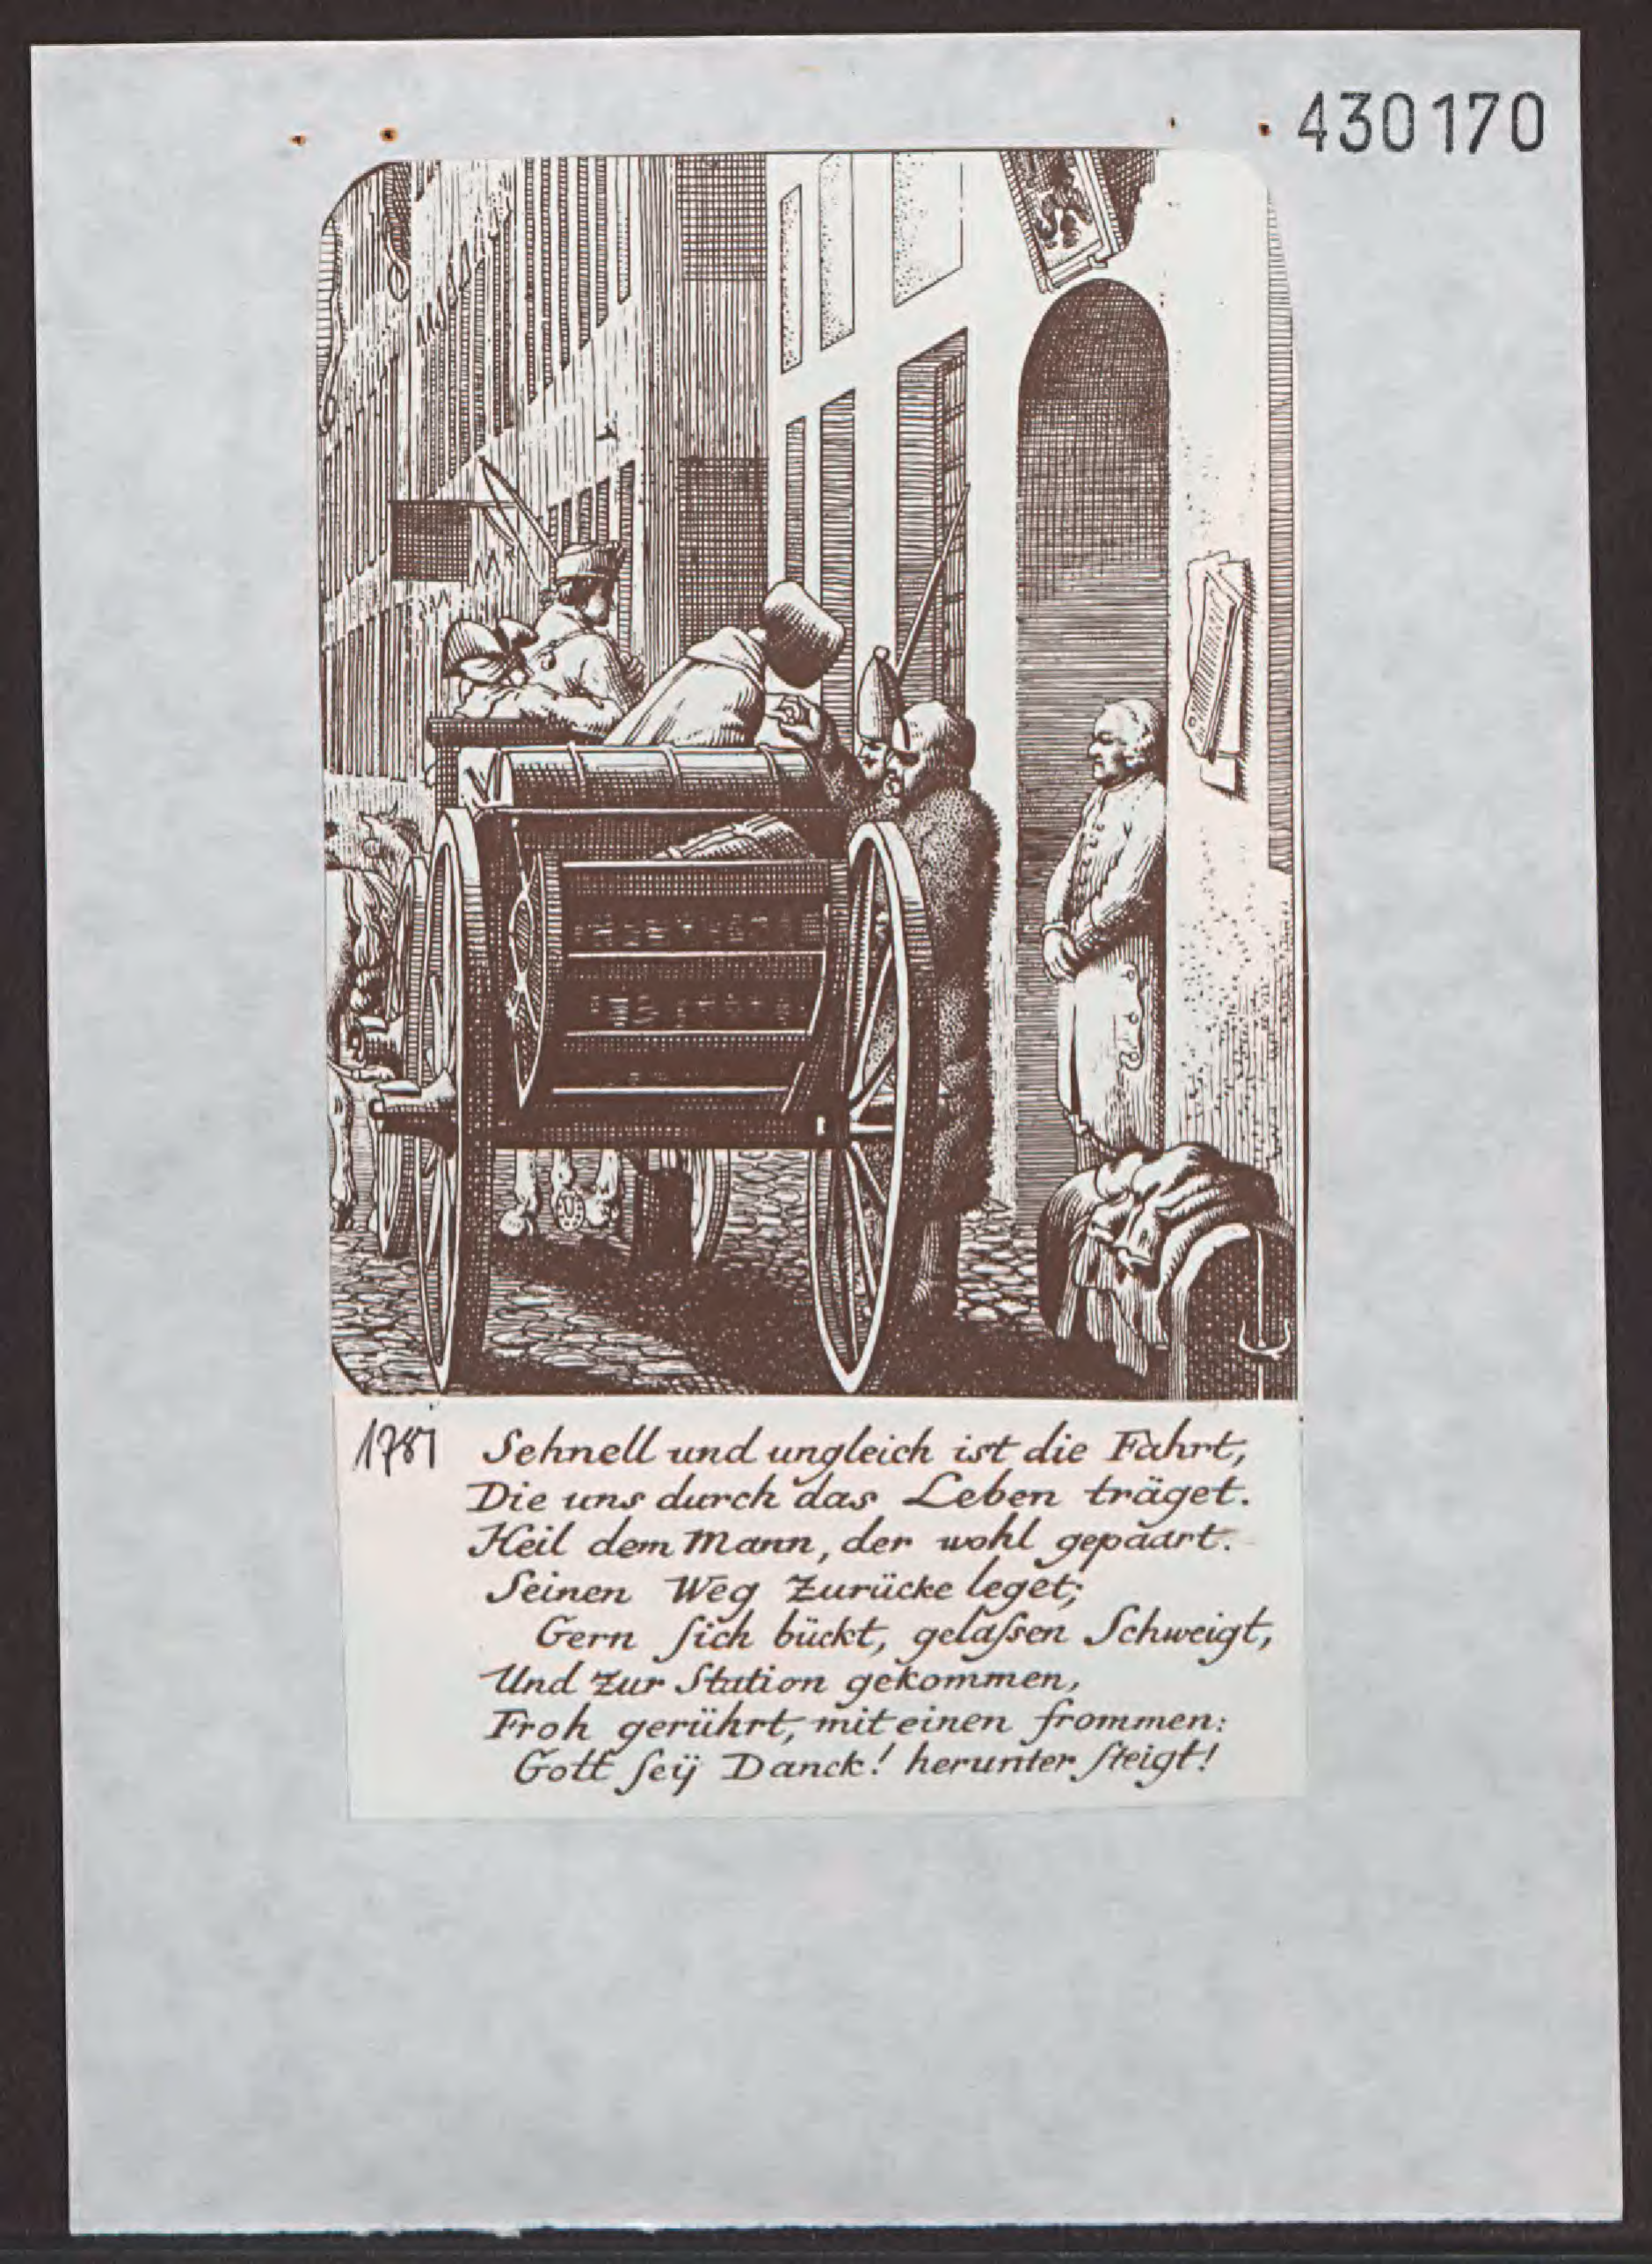 430170
1781 Schnell und ungleich ist die Fahrt,
Die uns durch das Leben träget.
Heil dem Mann, der wohl gepaart.
Seinen Weg Zurücke leget;
Gern ſich bückt, gelaſsen Schweigt,
Und Zur Station gekommen,
Froh gerührt, mit einen frommen:
Gott ſeÿ Danck! herunter ſteigt!